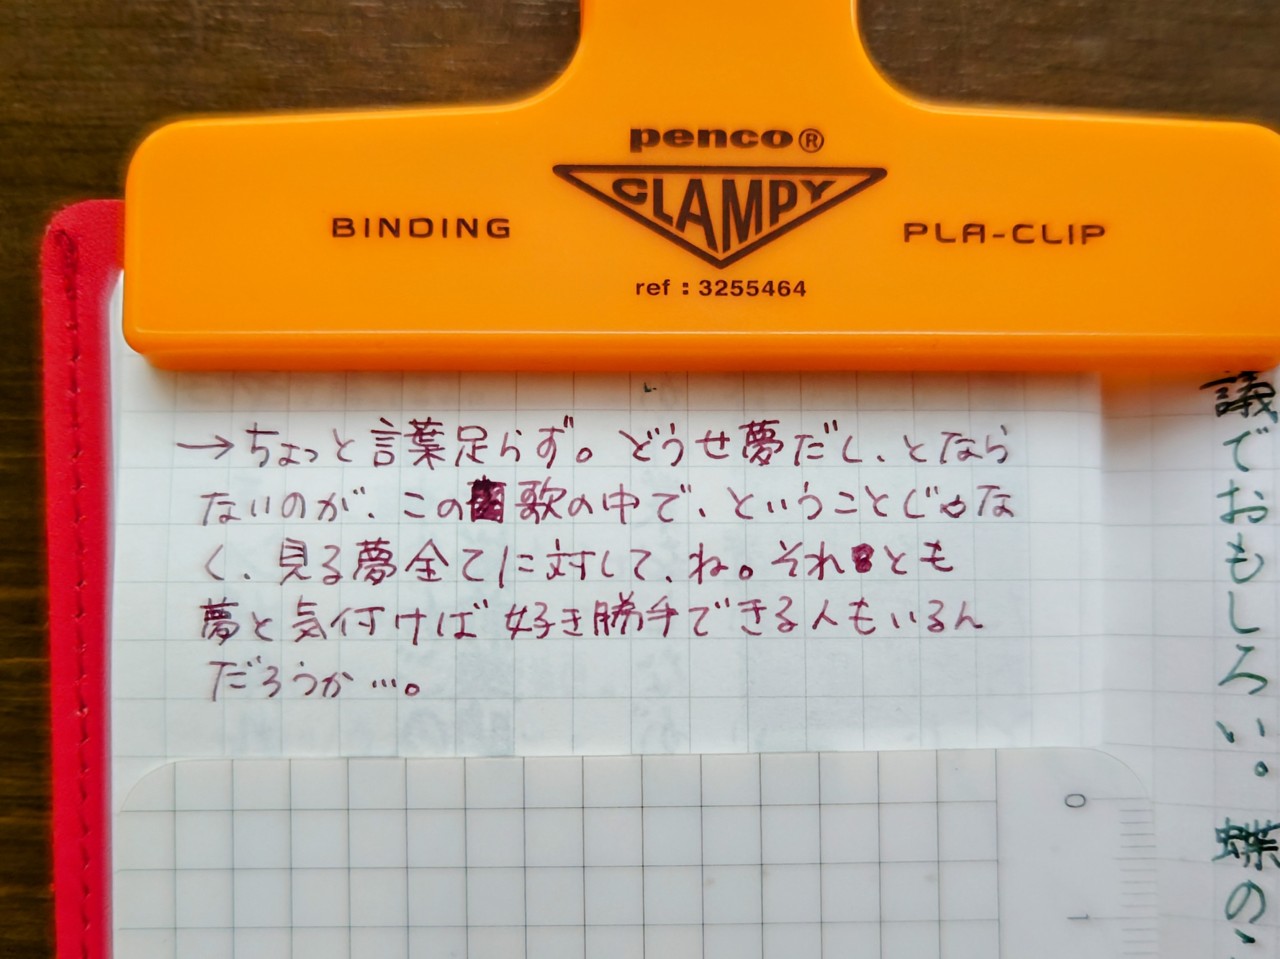 penco®
CLAMPY
BINDING
PLA-CLIP
ref : 3255464
→ちょっと言葉足らず。どうせ夢だし、となら
ないのが、この歌の中で、ということじゃな
く、見る夢全てに対して、ね。それとも
夢と気付けば好き勝手できる人もいるん
だろうか…。
議でおもしろい。蝶の
0
1